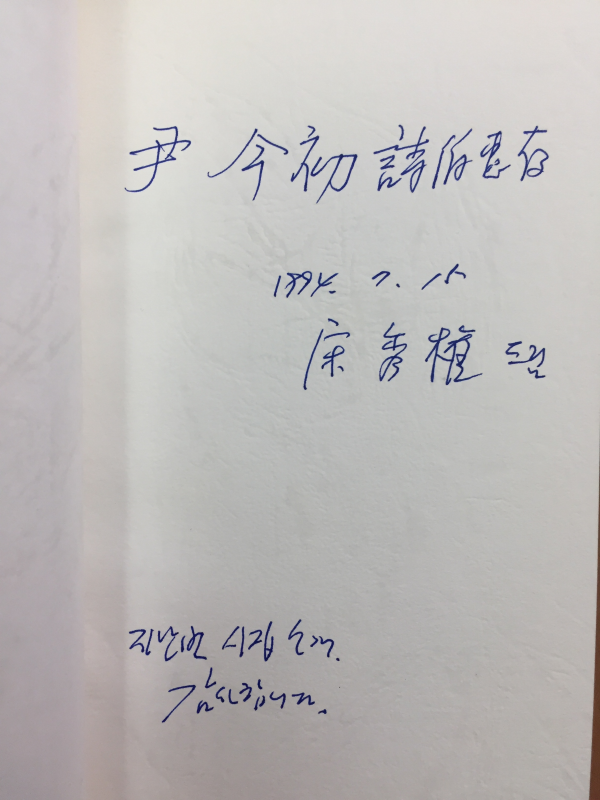 尹 今初 詩伯惠存
1994. 7. 15
宋 秀 權 드림
지난번 시집
감사합니다.